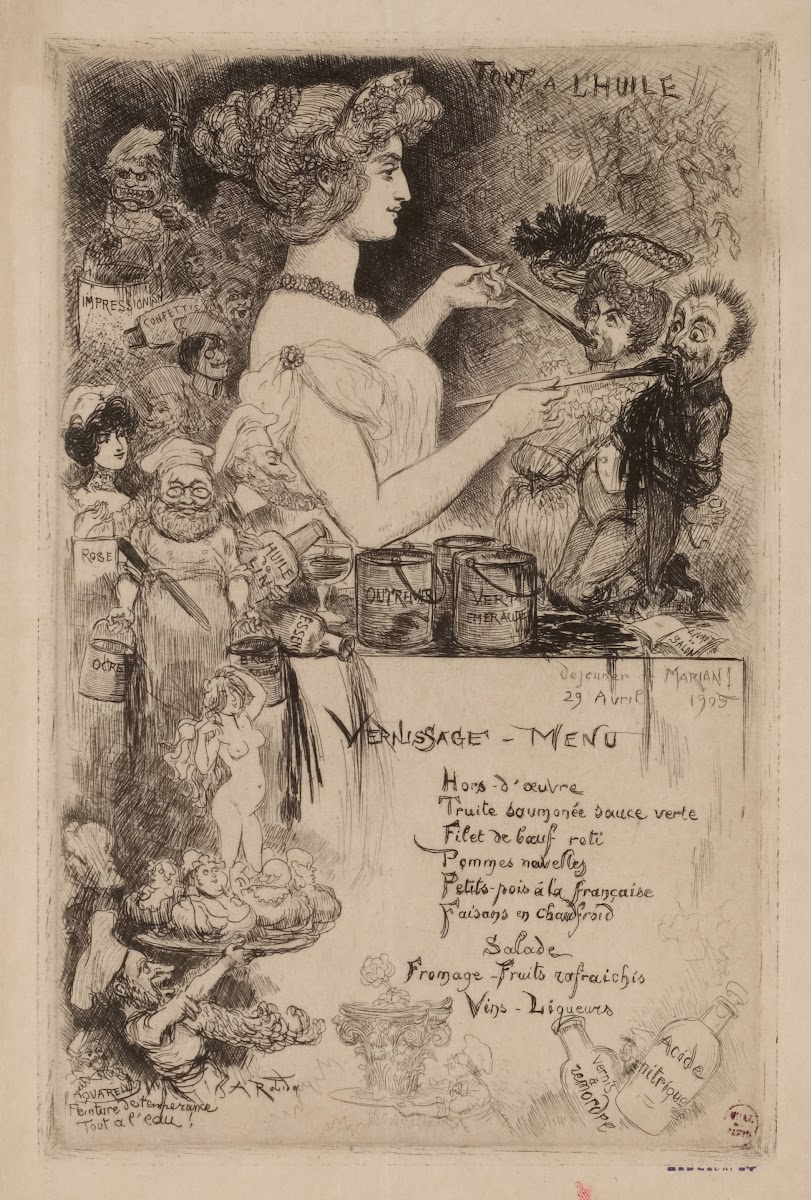 TOUT A L'HUILE
IMPRESSIONI
CONFETTI
ROSE
HUILE DE LIN
OUTREMER
VERT EMERAUDE
OCRE
ESSEN
SALON
dejeuner MARIANI
29 Avril 1905
VERNISSAGE - MENU
Hors-d'œuvre
Truite saumonée sauce verte
Filet de bœuf roti
Pommes novelles
Petits-pois à la française
Faisans en chaudfroid
Salade
Fromage - Fruits rafraichis
Vins - Liqueurs
Acide nitrique
Vernis à remordre
AQUARELLE
Peinture de temperance
Tout a l'eau !
A Robida